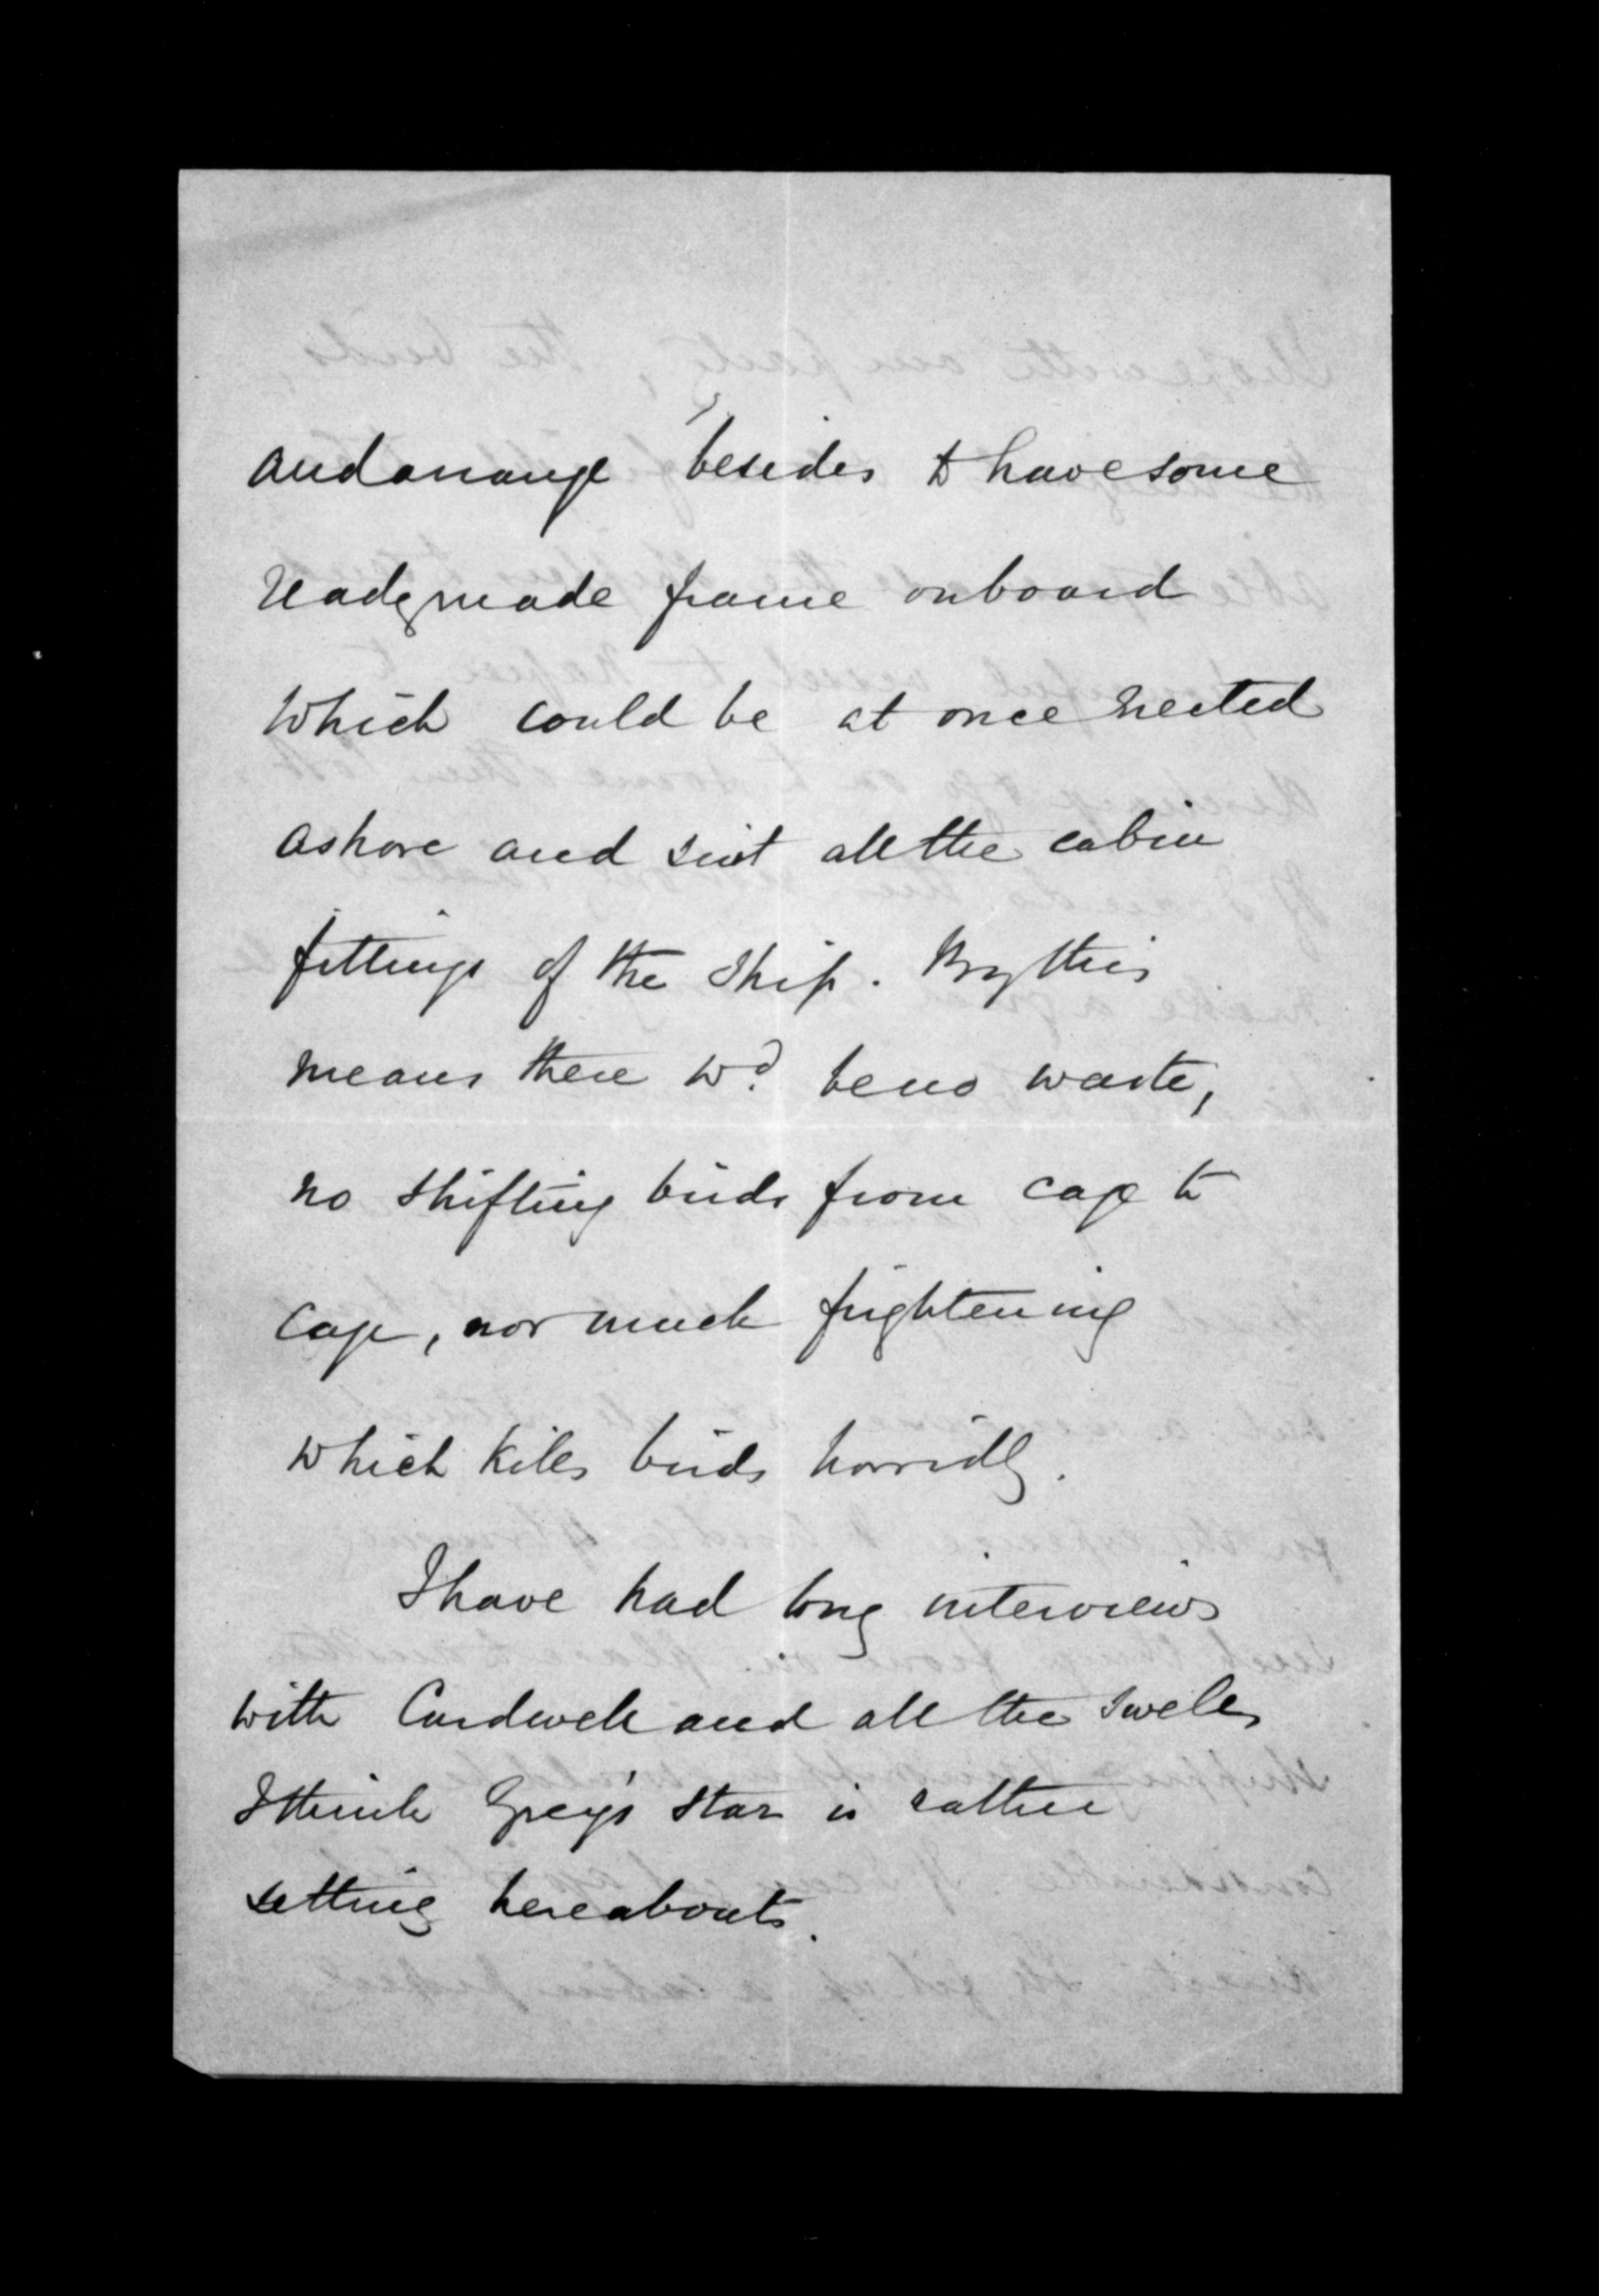 and arrange besides to have some
ready made frame on board
which could be at once erected
ashore and suit all the cabin
fittings of the ship. By this
means there wd. be no waste,
no shifting birds from cage to
cage, nor much frightening
which kills birds horridly.
I have had long interviews
with Cardwell and all the swells
I think Grey's star is rather
setting hereabouts.